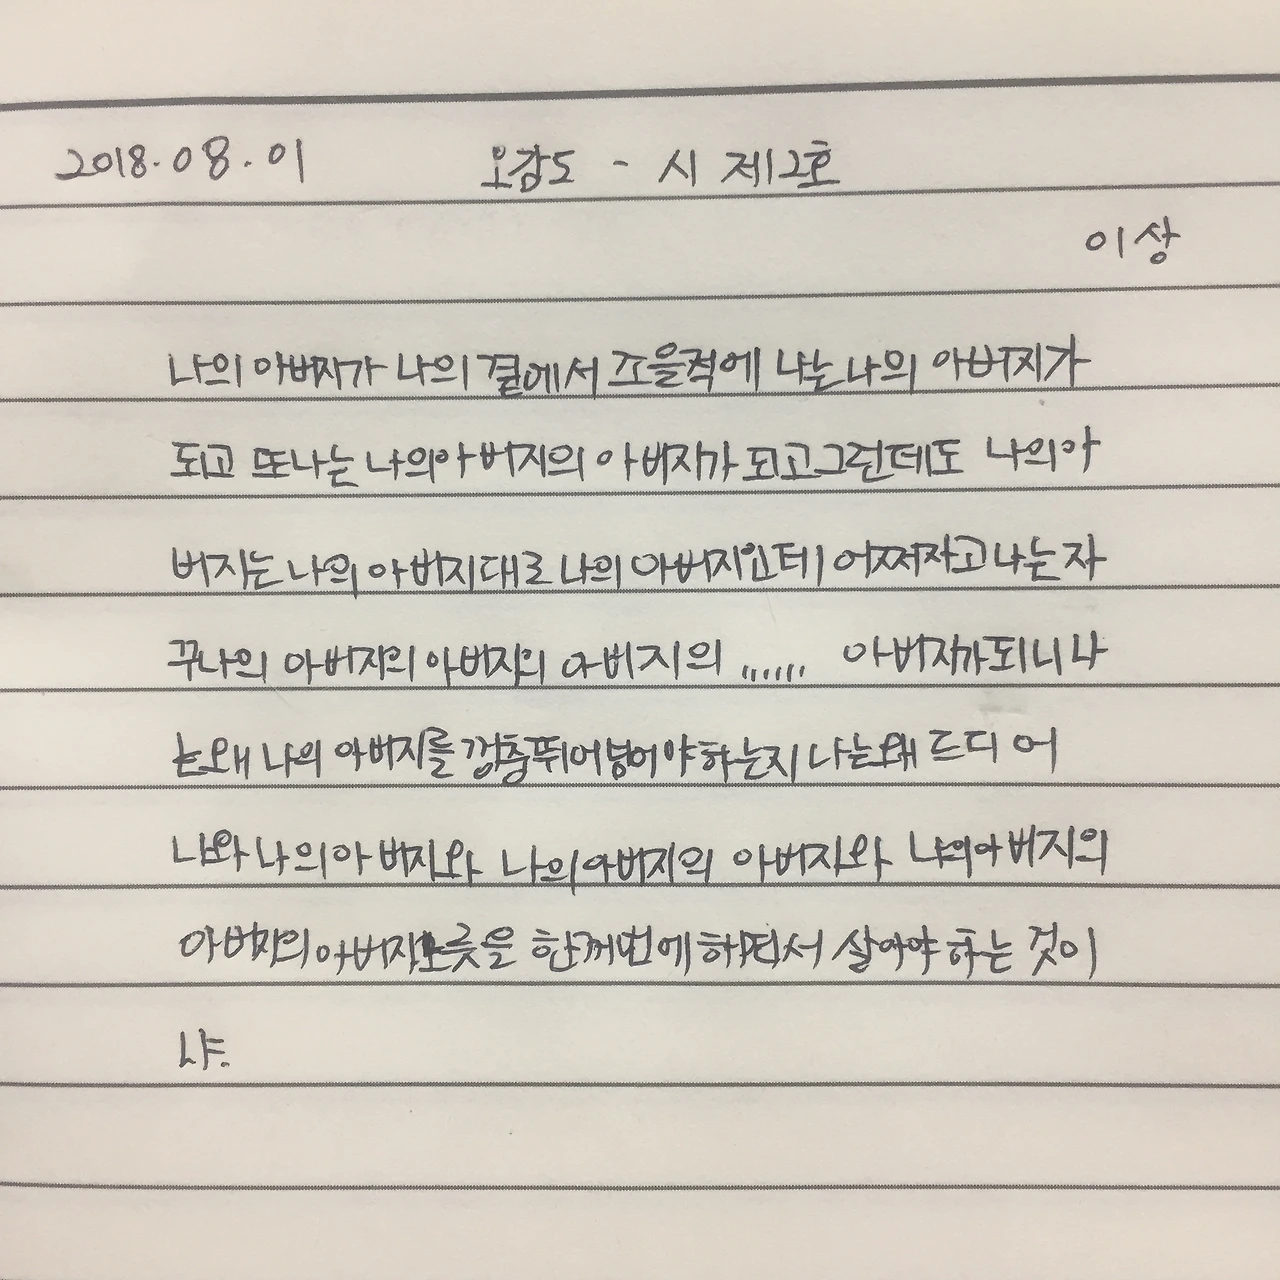 2018.08.01 오감도 - 시 제2호
이상
나의 아버지가 나의 곁에서 조을적에 나는나의 아버지가
되고 또나는 나의아버지의 아버지가 되고그런데도 나의아
버지는 나의 아버지대로 나의 아버지인데 어쩌자고나는자
꾸나의 아버지의 아버지의 아버지의 ...... 아버지가되니나
는왜 나의 아버지를 껑충뛰어넘어야하는지 나는왜 드디어
나와나의아버지와 나의아버지의 아버지와 나의아버지의
아버지의아버지노릇을 한꺼번에하면서 살아야하는 것이
냐.